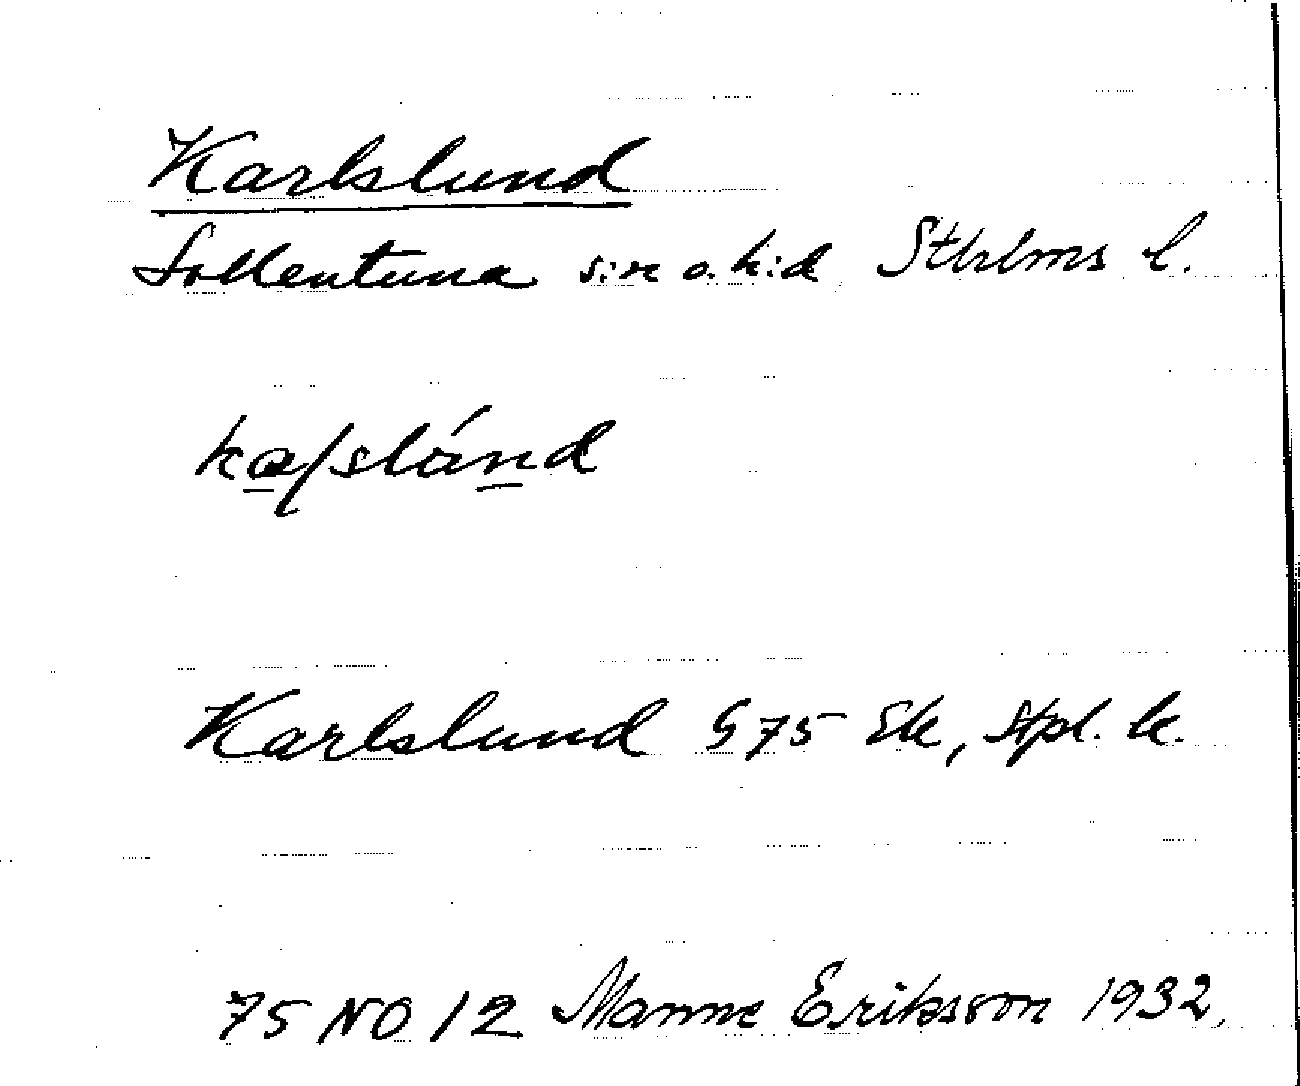 Karlslund
Sollentuna s:n o. h:d Sthlms l.
Karlslund G 75 Ek, Stpl. k.
75 NO 12 Manne Eriksson 1932